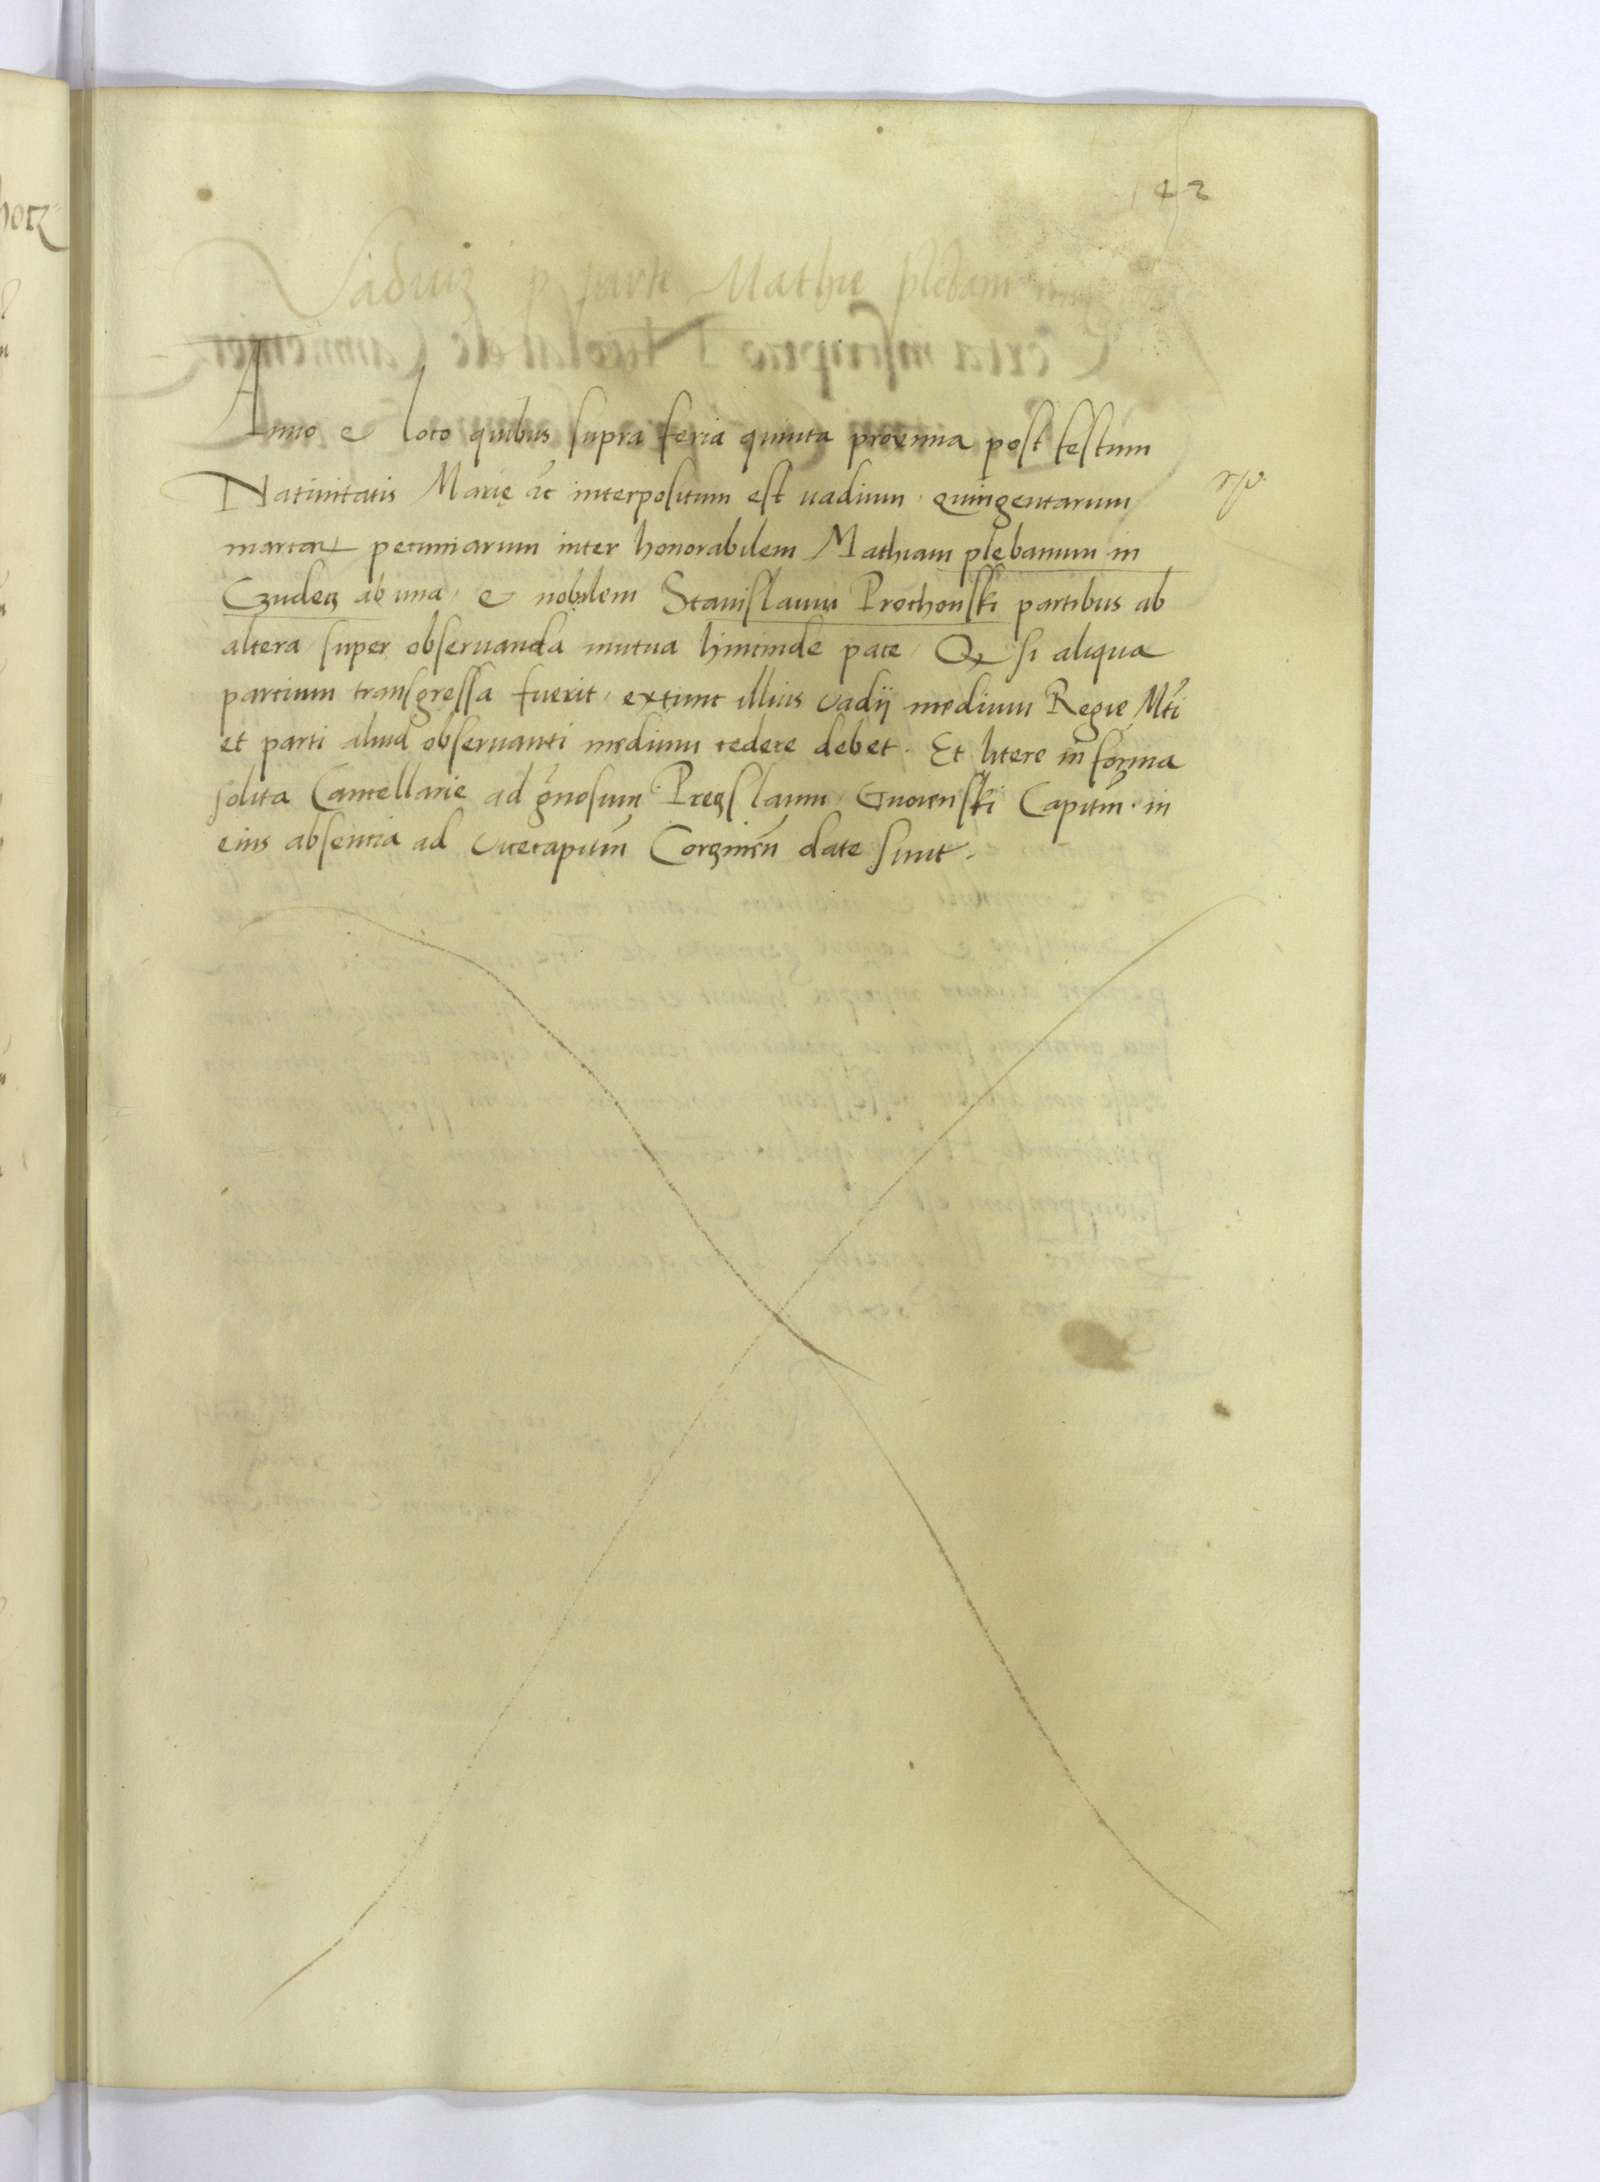 142
Vadium p parte Mathie plebani
Anno et loco quibus supra feria quinta proxima post festum
Nativitatis Marię etc interpositum est vadium quingentarum
marcar pecuniarum inter honorabilem Mathiam plebanum in
Czudecz ab una, et nobilem Stanislaum Prochonski partibus ab
altera super observanda mutua hincinde pace, Q si aliqua
partium transgressa fuerit, extunc illius vadij medium Regie Mti
et parti aliud observanti medium cedere debet. Et litere in forma
solita Cancellarie ad gnosum Preczslaum Gnoienski Capitm in
eius absentia ad vicecapitm Corczinen date sunt.